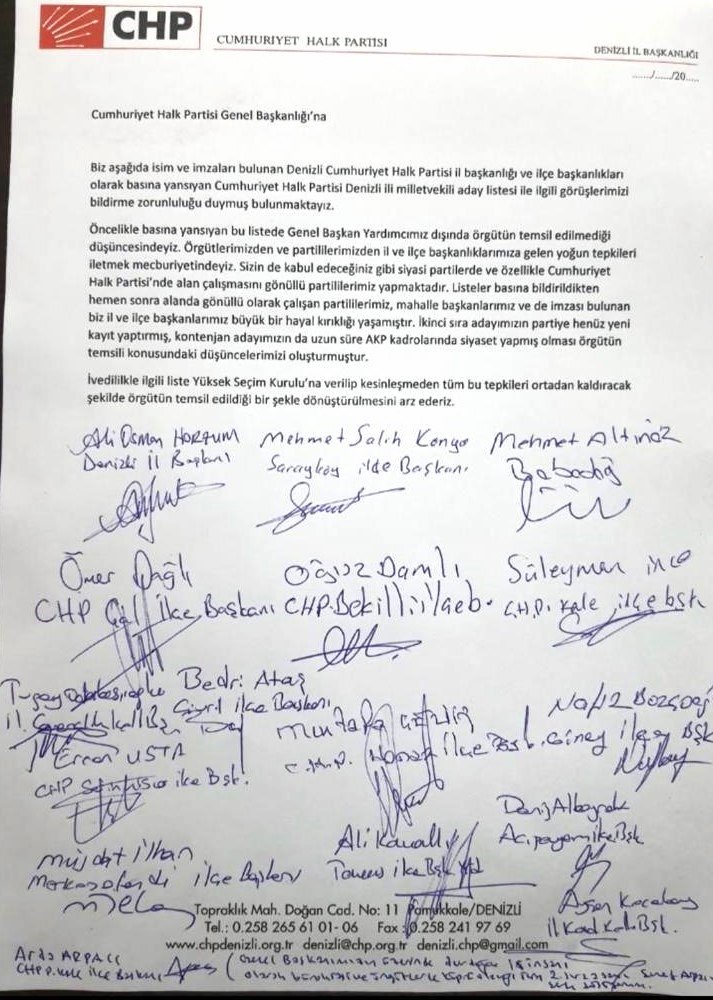 CHP CUMHURİYET HALK PARTİSİ
DENİZLİ İL BAŞKANLIĞI
....../....../20.....
Cumhuriyet Halk Partisi Genel Başkanlığı'na
Biz aşağıda isim ve imzaları bulunan Denizli Cumhuriyet Halk Partisi il başkanlığı ve ilçe başkanlıkları
olarak basına yansıyan Cumhuriyet Halk Partisi Denizli ili milletvekili aday listesi ile ilgili görüşlerimizi
bildirme zorunluluğu duymuş bulunmaktayız.
Öncelikle basına yansıyan bu listede Genel Başkan Yardımcımız dışında örgütün temsil edilmediği
düşüncesindeyiz. Örgütlerimizden ve partililerimizden il ve ilçe başkanlıklarımıza gelen yoğun tepkileri
iletmek mecburiyetindeyiz. Sizin de kabul edeceğiniz gibi siyasi partilerde ve özellikle Cumhuriyet
Halk Partisi'nde alan çalışmasını gönüllü partililerimiz yapmaktadır. Listeler basına bildirildikten
hemen sonra alanda gönüllü olarak çalışan partililerimiz, mahalle başkanlarımız ve de imzası bulunan
biz il ve ilçe başkanlarımız büyük bir hayal kırıklığı yaşamıştır. İkinci sıra adayımızın partiye henüz yeni
kayıt yaptırmış, kontenjan adayımızın da uzun süre AKP kadrolarında siyaset yapmış olması örgütün
temsili konusundaki düşüncelerimizi oluşturmuştur.
İvedilikle ilgili liste Yüksek Seçim Kurulu'na verilip kesinleşmeden tüm bu tepkileri ortadan kaldıracak
şekilde örgütün temsil edildiği bir şekle dönüştürülmesini arz ederiz.
Ali Osman HORZUM Mehmet Salih Konya Mehmet Altınöz
Denizli İl Başkanı Sarayköy ilçe Başkanı Babadağ
Ömer Dağlı Oğuz Damlı Süleyman ince
CHP Çal İlçe Başkanı CHP Bekilli ilçe b. C.H.P. Kale ilçe bşk
Bedri Ataş
Çivril İlçe Başkanı
Mustafa Nafiz
C.H.P. Honaz İlçe Bşk. Güney ilçe Bşk
Ercan USTA
CHP ilçe Bşk.
Deniz Albayrak
Ali Acıpayam ilçe Bşk.
Müjdat ilhan Tavas ilçe Bşk
Merkezefendi ilçe Başkanı
Ayşen
İl Kad. Kol. Bşk.
Topraklık Mah. Doğan Cad. No: 11 Pamukkale/DENİZLİ
Tel.: 0.258 265 61 01- 06 Fax : 0.258 241 97 69
www.chpdenizli.org.tr denizli@chp.org.tr denizli.chp@gmail.com
Arda ARPACI
CHP ilçe Başkanı